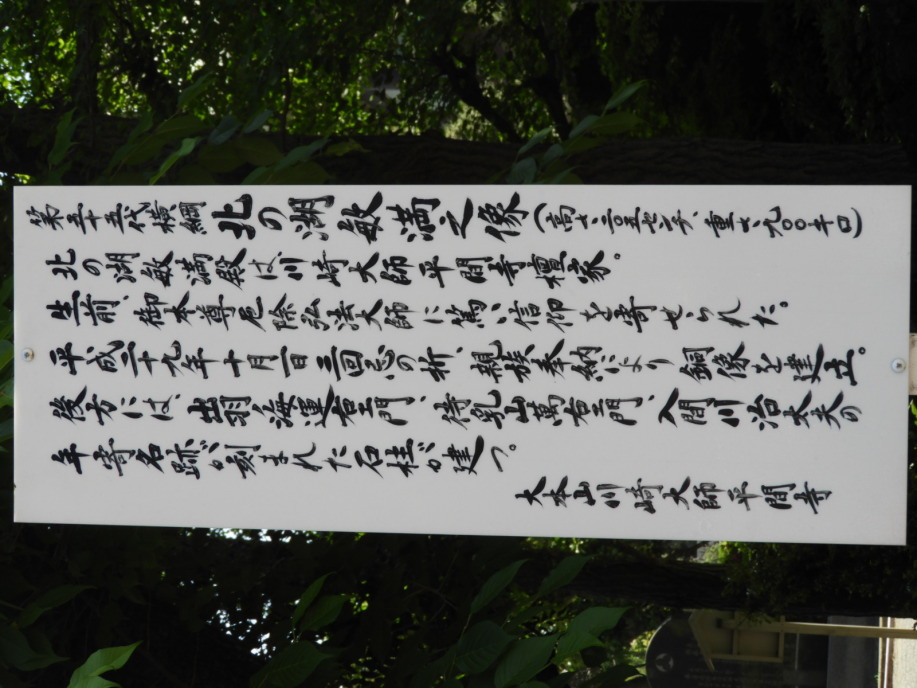 第五十五代横綱 北の湖敏満之像(高さ、二五七センチ、重さ、九〇〇キロ)
北の湖敏満殿は、川崎大師平間寺檀家。
生前、御本尊厄除弘法大師に篤い信仰を寄せられた。
平成二十九年十月一日三回忌の折、親族奉納により銅像を建立。
後方には、出羽ノ海運右エ門、待乳山萬右エ門、入間川治太夫の
年寄名跡が刻まれた石柱が建つ。
大本山川崎大師平間寺